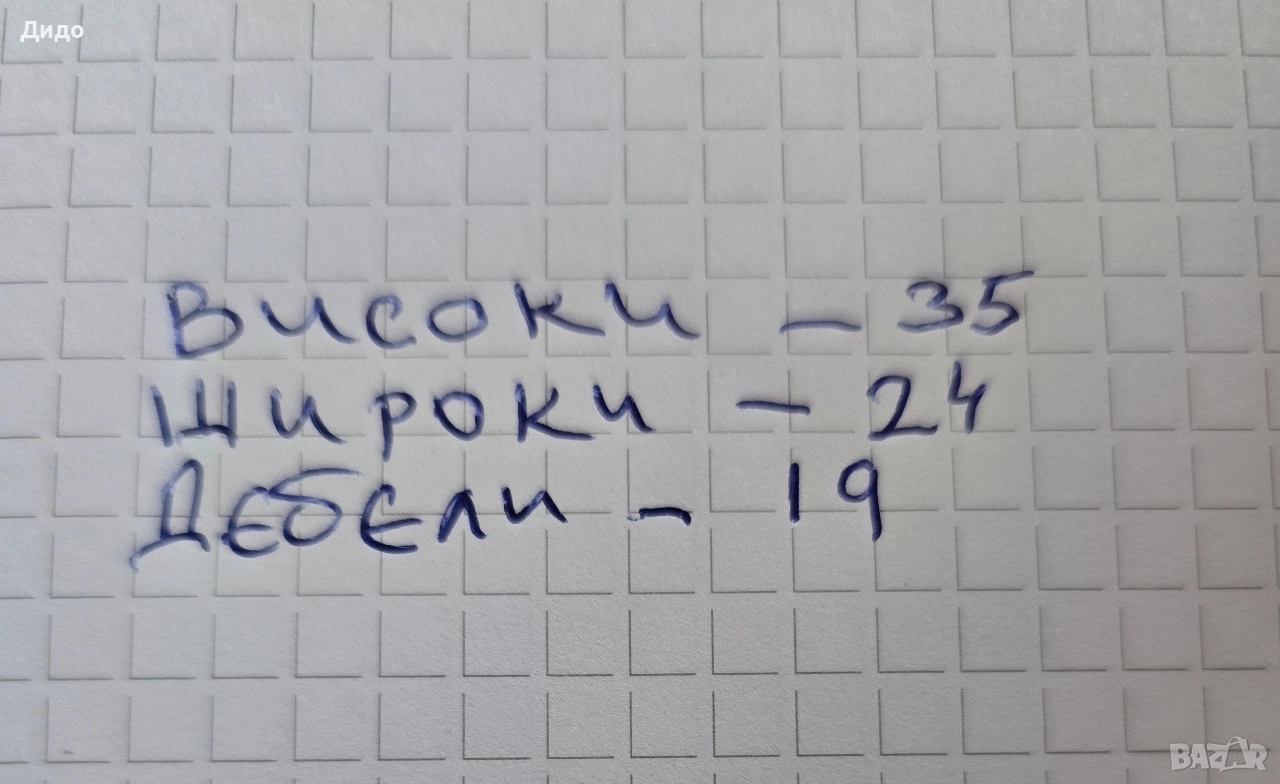 Дидо
Високи - 35
Широки - 24
Дебели - 19
BAZAR